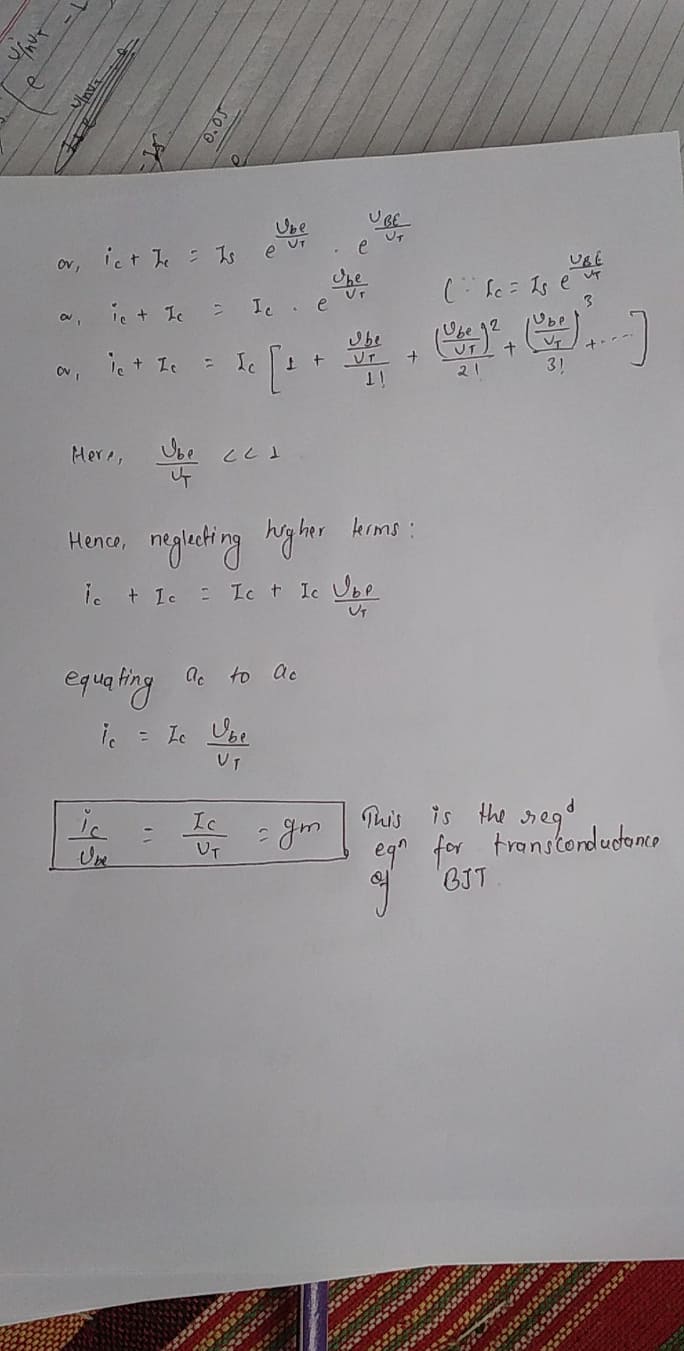 [e^(V/nVT) - 1
0.05
e
or, ic + Ic = Is e^(Vbe/VT) . e^(VBE/VT)
or, ic + Ic = Ic . e^(Vbe/VT) (∵ Ic = Is e^(VBE/VT)
or, ic + Ic = Ic [1 + (Vbe/VT)/1! + (Vbe/VT)^2/2! + (Vbe/VT)^3/3! + ....]
Here, Vbe/VT << 1
Hence, neglecting higher terms:
ic + Ic = Ic + Ic Vbe/VT
equating ac to ac
ic = Ic Vbe/VT
ic/Vbe = Ic/VT = gm
This is the reqd
eqn for transconductance
of BJT.